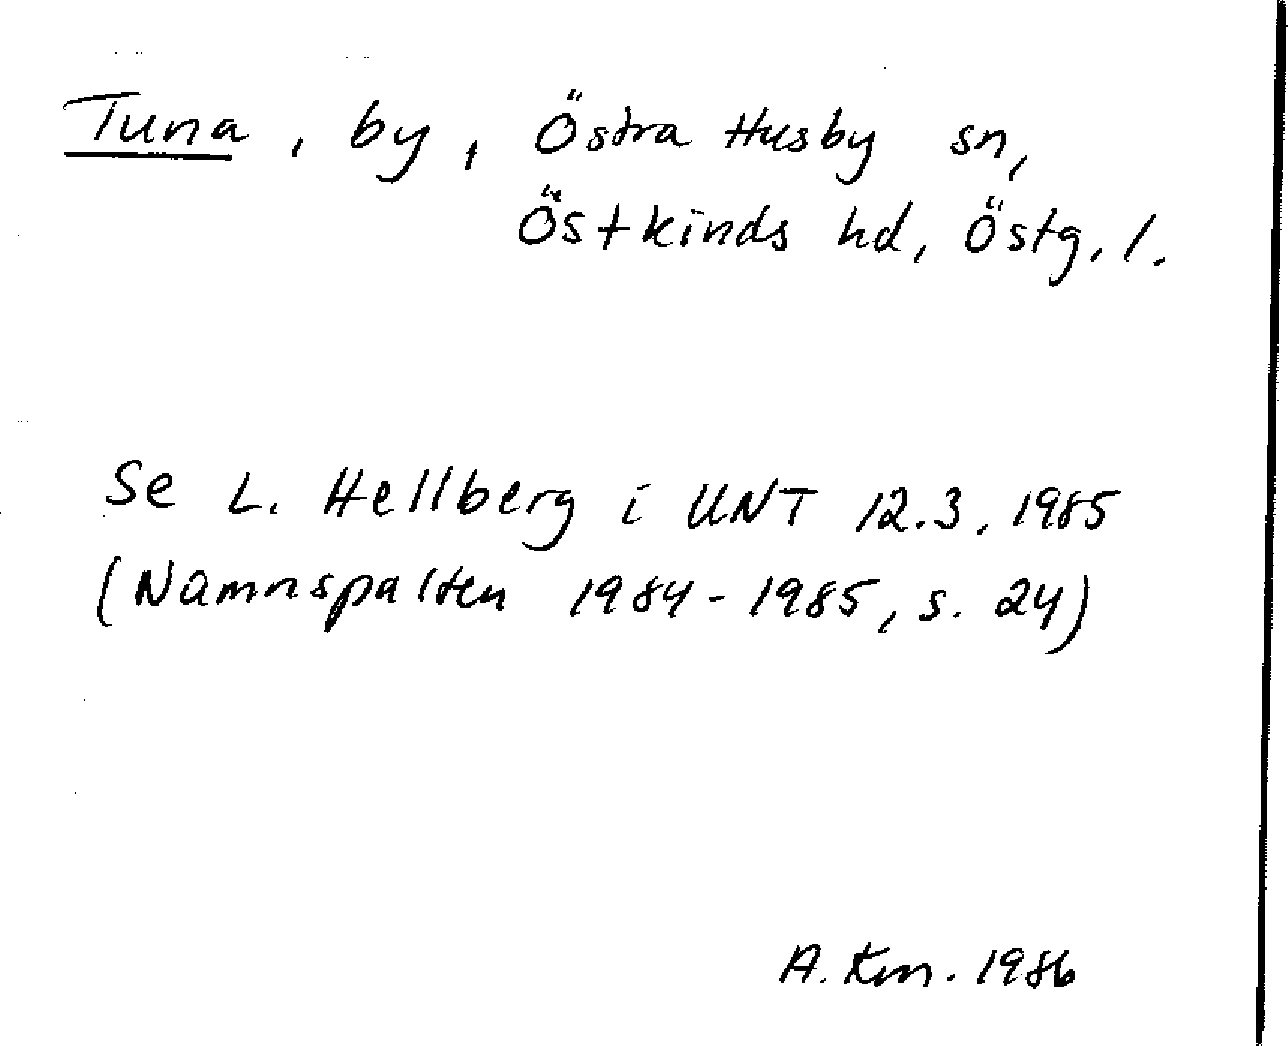 Tuna, by, Östra Husby sn,
Östkinds hd, Östg. l.
Se L. Hellberg i UNT 12.3.1985
(Namnspalten 1984-1985, s. 24)
A. Km. 1986